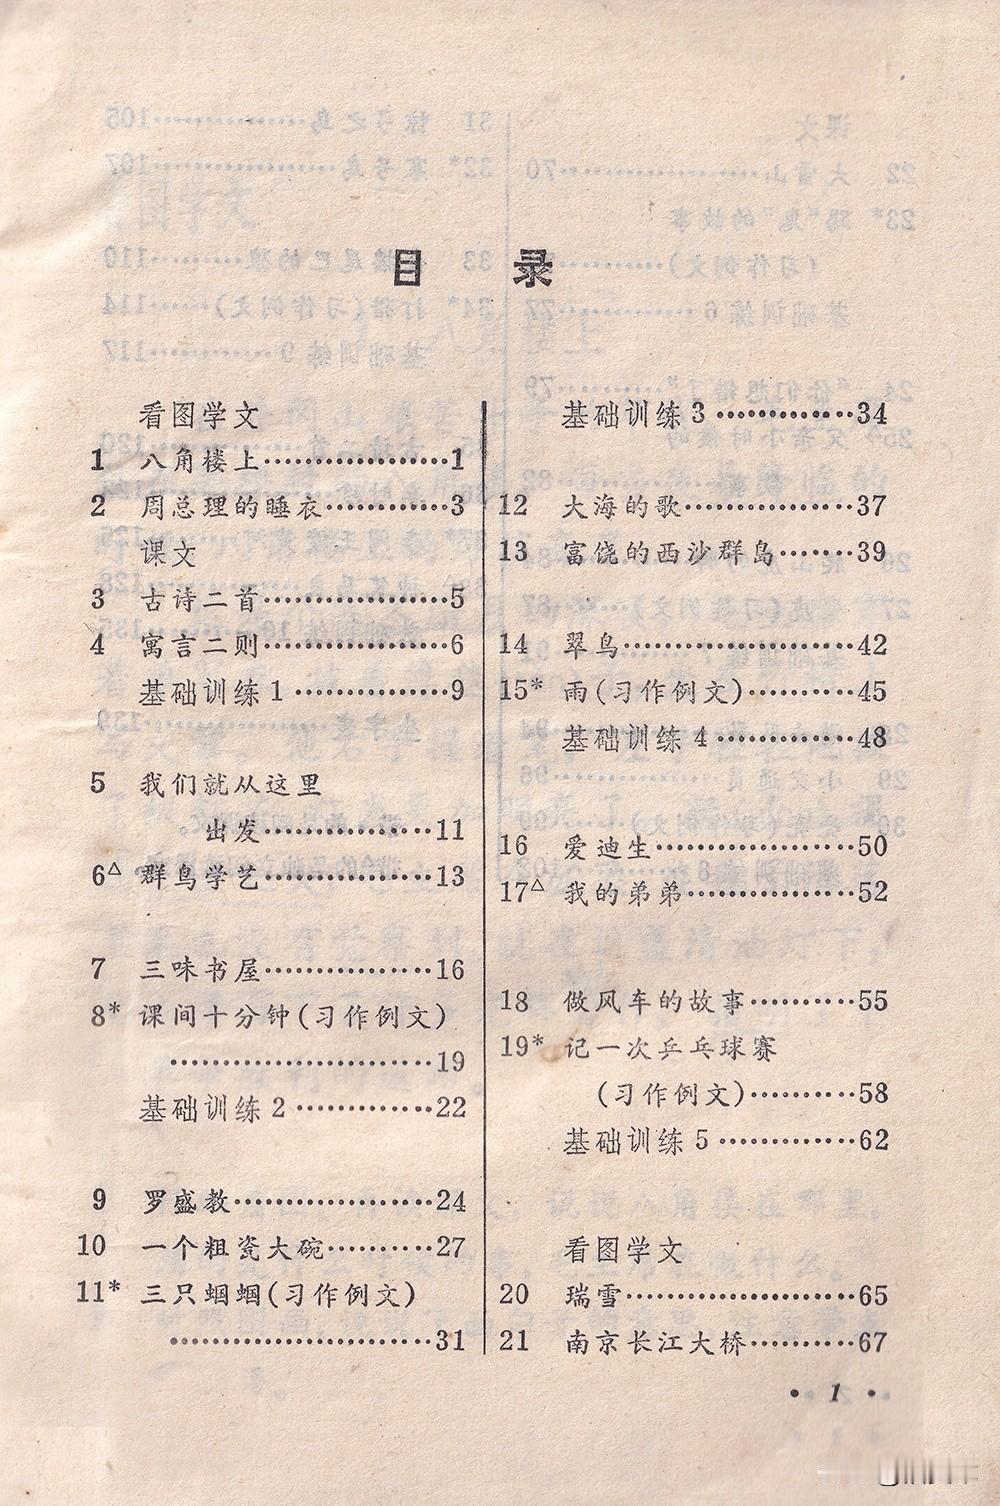 目 录
看图学文
1 八角楼上…………………1
2 周总理的睡衣……………3
课文
3 古诗二首…………………5
4 寓言二则…………………6
基础训练1………………9
5 我们就从这里
出发………………11
6△ 群鸟学艺………………13
7 三味书屋………………16
8* 课间十分钟(习作例文)
…………………………19
基础训练2……………22
9 罗盛教…………………24
10 一个粗瓷大碗…………27
11* 三只蝈蝈(习作例文)
…………………………31
基础训练3……………34
12 大海的歌………………37
13 富饶的西沙群岛………39
14 翠鸟……………………42
15* 雨(习作例文)…………45
基础训练4……………48
16 爱迪生…………………50
17△ 我的弟弟………………52
18 做风车的故事…………55
19* 记一次乒乓球赛
(习作例文)…………58
基础训练5……………62
看图学文
20 瑞雪……………………65
21 南京长江大桥…………67
• 1 •